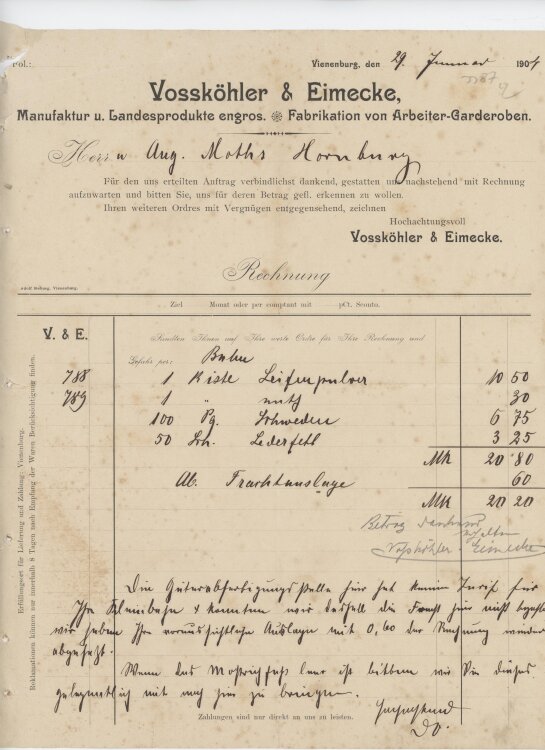 Fol.:
Vienenburg, den 29. Januar 1904
Vossköhler & Eimecke,
Manufaktur u. Landesprodukte engros. Fabrikation von Arbeiter-Garderoben.
Herrn Aug. Moths Hornburg
Für den uns erteilten Auftrag verbindlichst dankend, gestatten uns nachstehend mit Rechnung
aufzuwarten und bitten Sie, uns für deren Betrag gefl. erkennen zu wollen.
Ihren weiteren Ordres mit Vergnügen entgegensehend, zeichnen
Hochachtungsvoll
Vossköhler & Eimecke.
Rechnung
Adolf Helbing, Vienenburg.
Ziel Monat oder per comptant mit pCt. Sconto.
V. & E.
Sandten Ihnen auf Ihre werte Ordre für Ihre Rechnung und
Gefahr per: Bahn
788 1 Kiste Seifenpulver 10 50
789 1 " 30
100 Pg. Schweden 6 75
50 Sch. Lederfett 3 25
Mk 20 80
Ab. Frachtauslage 60
Mk 20 20
Betrag dankend
erhalten
Vossköhler Eimecke
Die Güterabfertigungsstelle hier hat keinen Tarif für
Ihre Kleinbahn & konnten wir deshalb die Fracht hier nicht
wir haben Ihre voraussichtliche Auslage mit 0,60 der Rechnung
abgesetzt.
Wenn das Mostrichfass leer ist bitten wir Sie dieses
gelegentlich mit nach hier zu bringen.
Hochachtend
Do.
Zahlungen sind nur direkt an uns zu leisten.
Erfüllungsort für Lieferung und Zahlung: Vienenburg.
Reklamationen können nur innerhalb 8 Tagen nach Empfang der Waren Berücksichtigung finden.